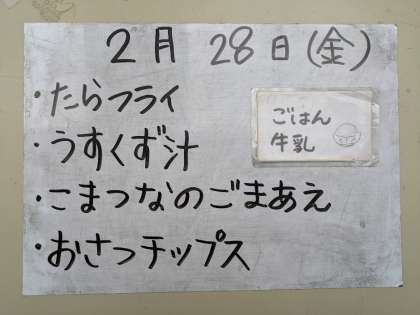 2月 28日(金)
・たらフライ
ごはん
牛乳
・うすくず汁
・こまつなのごまあえ
・おさつチップス